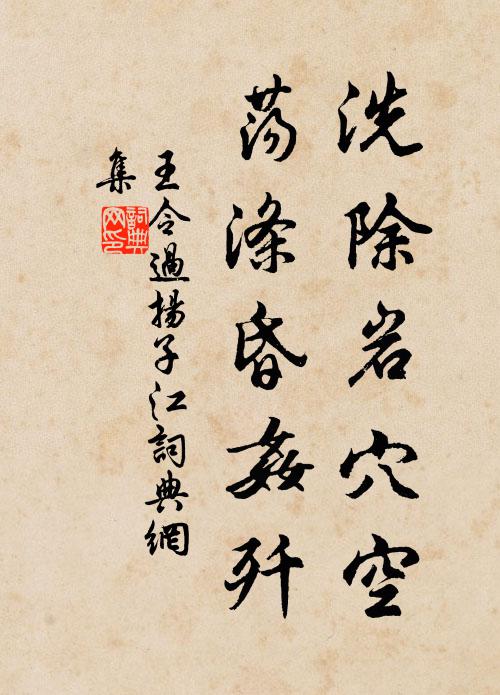 洗除岩穴空
荡涤昏姦歼
王令過揚子江詞典網
集
詞典网印